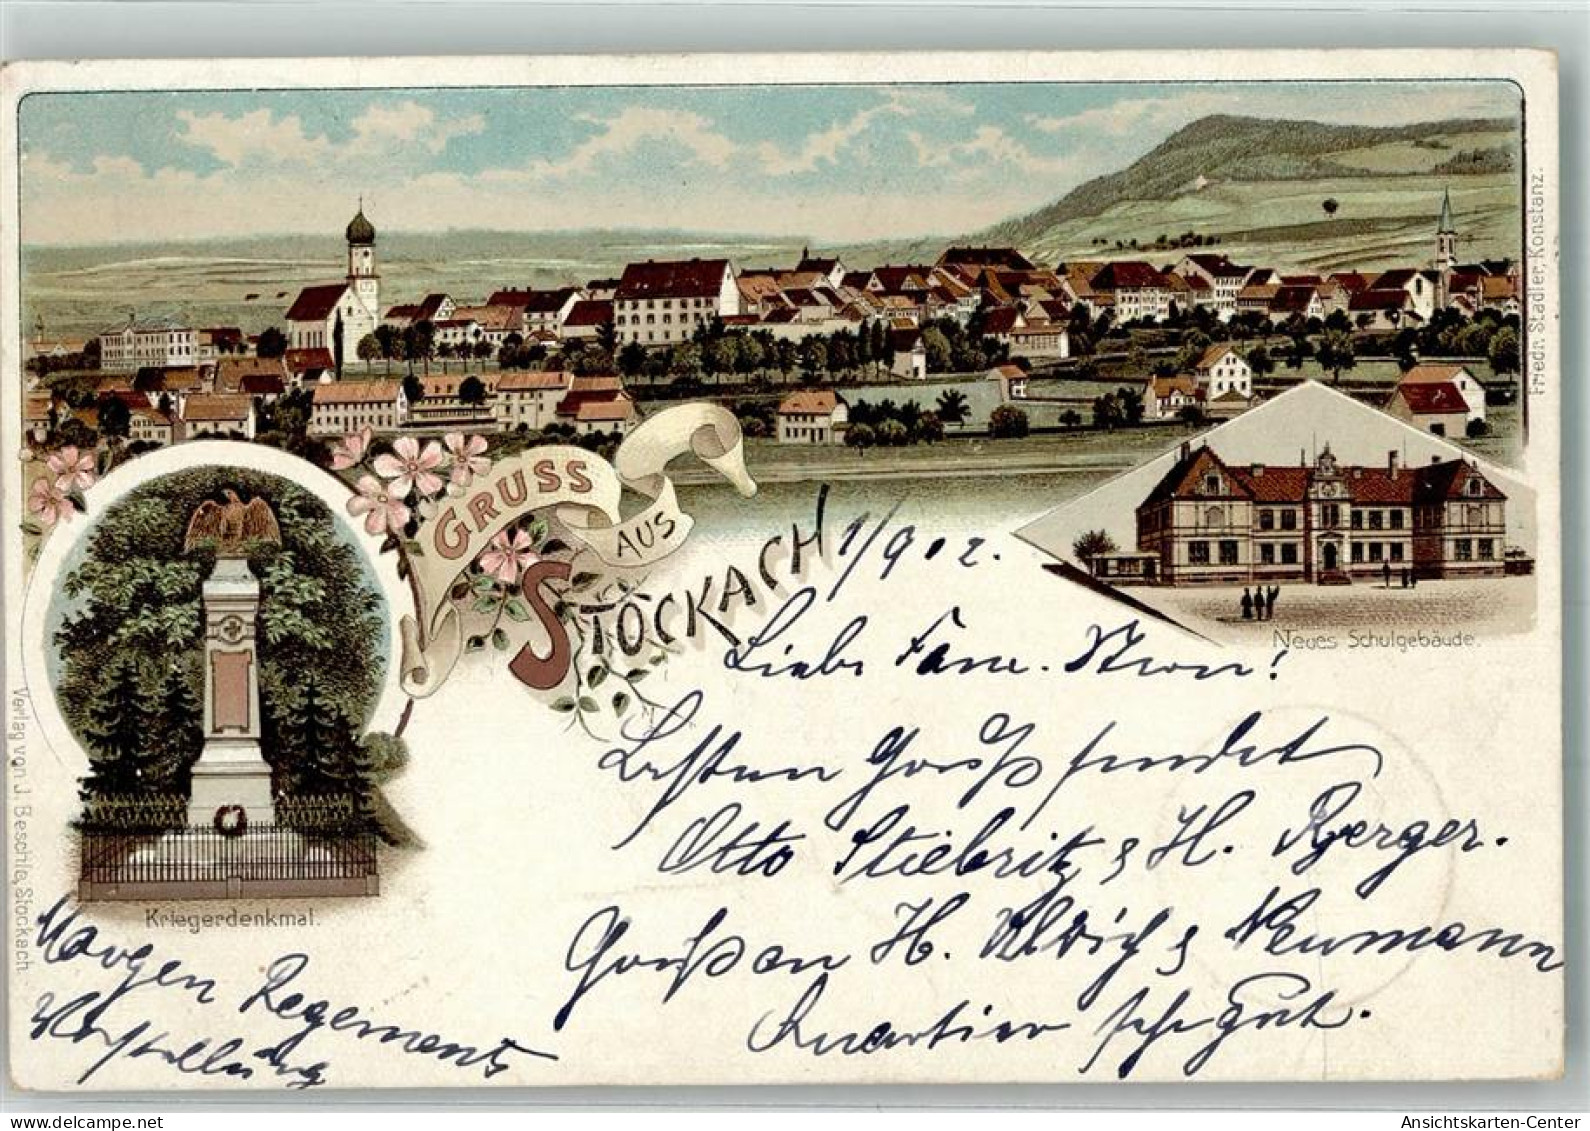 GRUSS
AUS
STOCKACH
1/9 02.
Liebe Fam.
Besten Gruß sendet
Otto Stiebritz & H. Berger.
Gruß an H. Ulbrich & Neumann
Quartier sehr gut.
Morgen Regements
Vorstellung
Kriegerdenkmal.
Neues Schulgebäude.
Friedr. Stadler, Konstanz.
Verlag von J. Beschle, Stockach
delcampe.net
AnsichtsKarten-Center